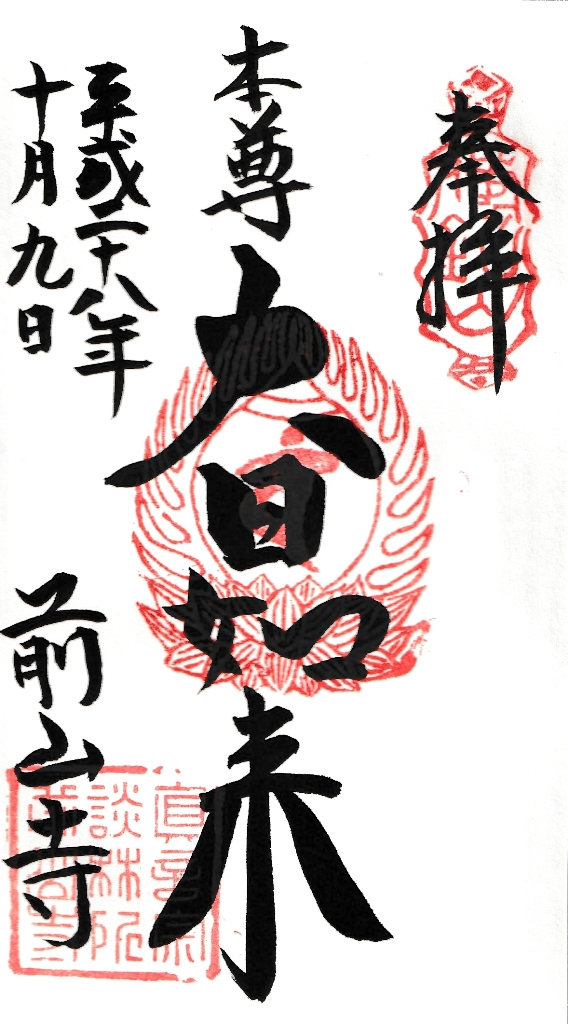 奉拝
本尊
大日如来
平成二十八年
十月九日
前山寺
真言宗
談林所
前山寺